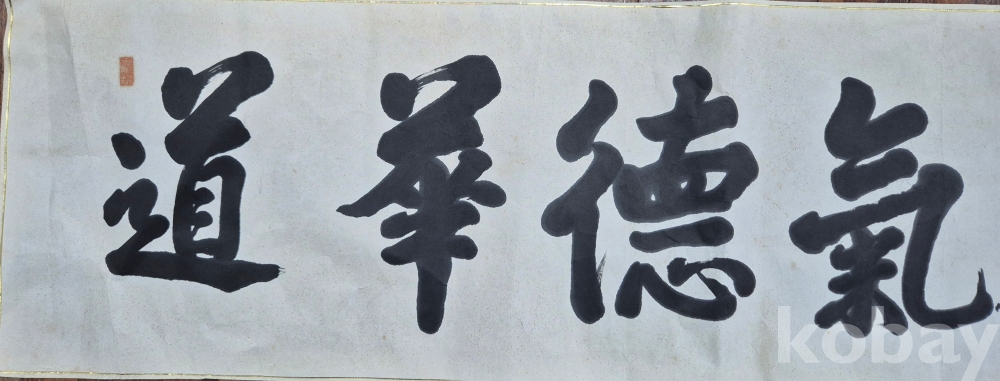 氣德華道
kobay